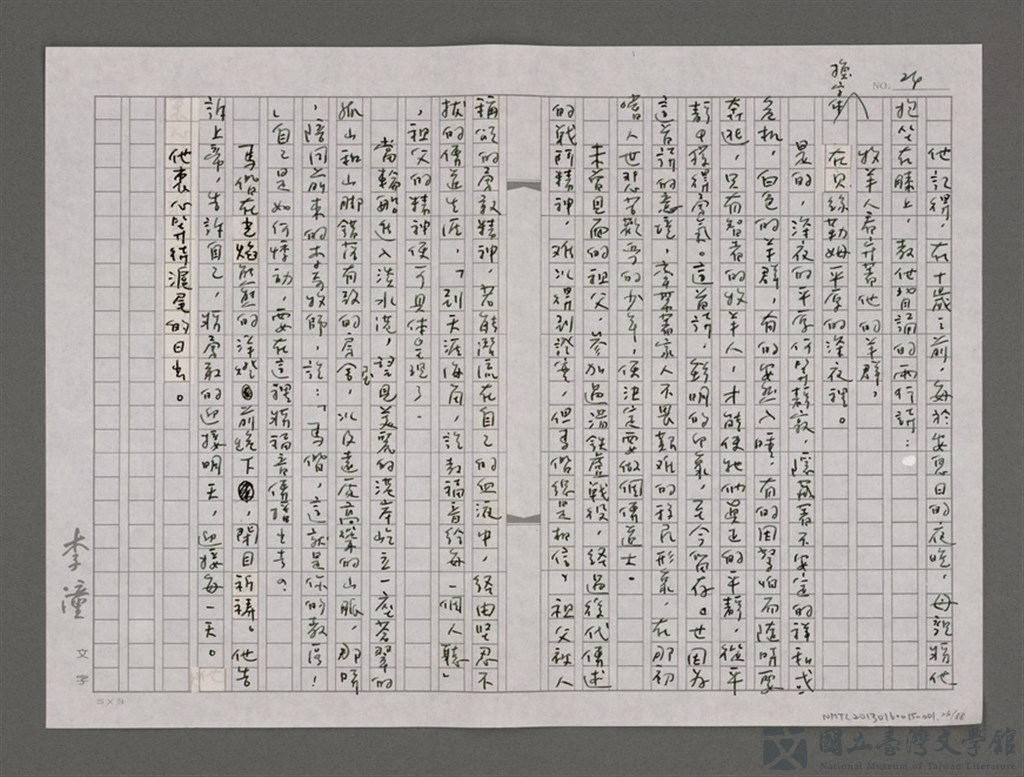 NO. 24
他記得，在十歲之前，每於安息日的夜晚，母親將他
抱坐在膝上，教他習誦的兩行詩：
牧羊人看守著他的羊群，
在貝絲勒姆平原的深夜裡。
是的，深夜的平原何等靜寂，隱藏著不安定的祥和或
危机，白色的羊群，有的安然入睡，有的因驚怕而隨時要
奔逃，只有智者的牧羊人，才能使牠們真正的平靜，從平
靜中獲得勇氣。這首詩，鮮明的印象，至今留存。也因為
這首詩的意境，牽引著家人不畏艱難的移民形象，在那初
嚐人世悲苦歡
的少年，便決定要做個傳道士。
未曾見面的祖父，參加過滑鐵盧戰役，經過後代傳述
的戰鬥精神，难以得到證實，但馬偕總是相信，祖父被人
稱頌的勇敢精神，若能潛流在自己的血液中，經由堅忍不
拔的傳道生涯，「到天涯海角，說教福音給每一個人聽」
，祖父的精神便可具体呈現了。
當輪船進入淡水港，望見美麗的港岸屹立一座蒼翠的
孤山和山腳錯落有致的房舍，以及遠處高聳的山脈，那時
，陪同前來的李庥牧師，說：「馬偕，這就是你的教區！
」自己是如何悸動，要在這裡將福音傳播出去？
馬偕在光焰熊熊的洋燈前跪下，閉目祈禱。他告
訴上帝，告訴自己，將勇敢的迎接明天，迎接每一天。
他衷心等待滬尾的日出。
李潼
文字
25×25
NMTL20130160015-001
26/28
國立臺灣文學館
National Museum of Taiwan Literature